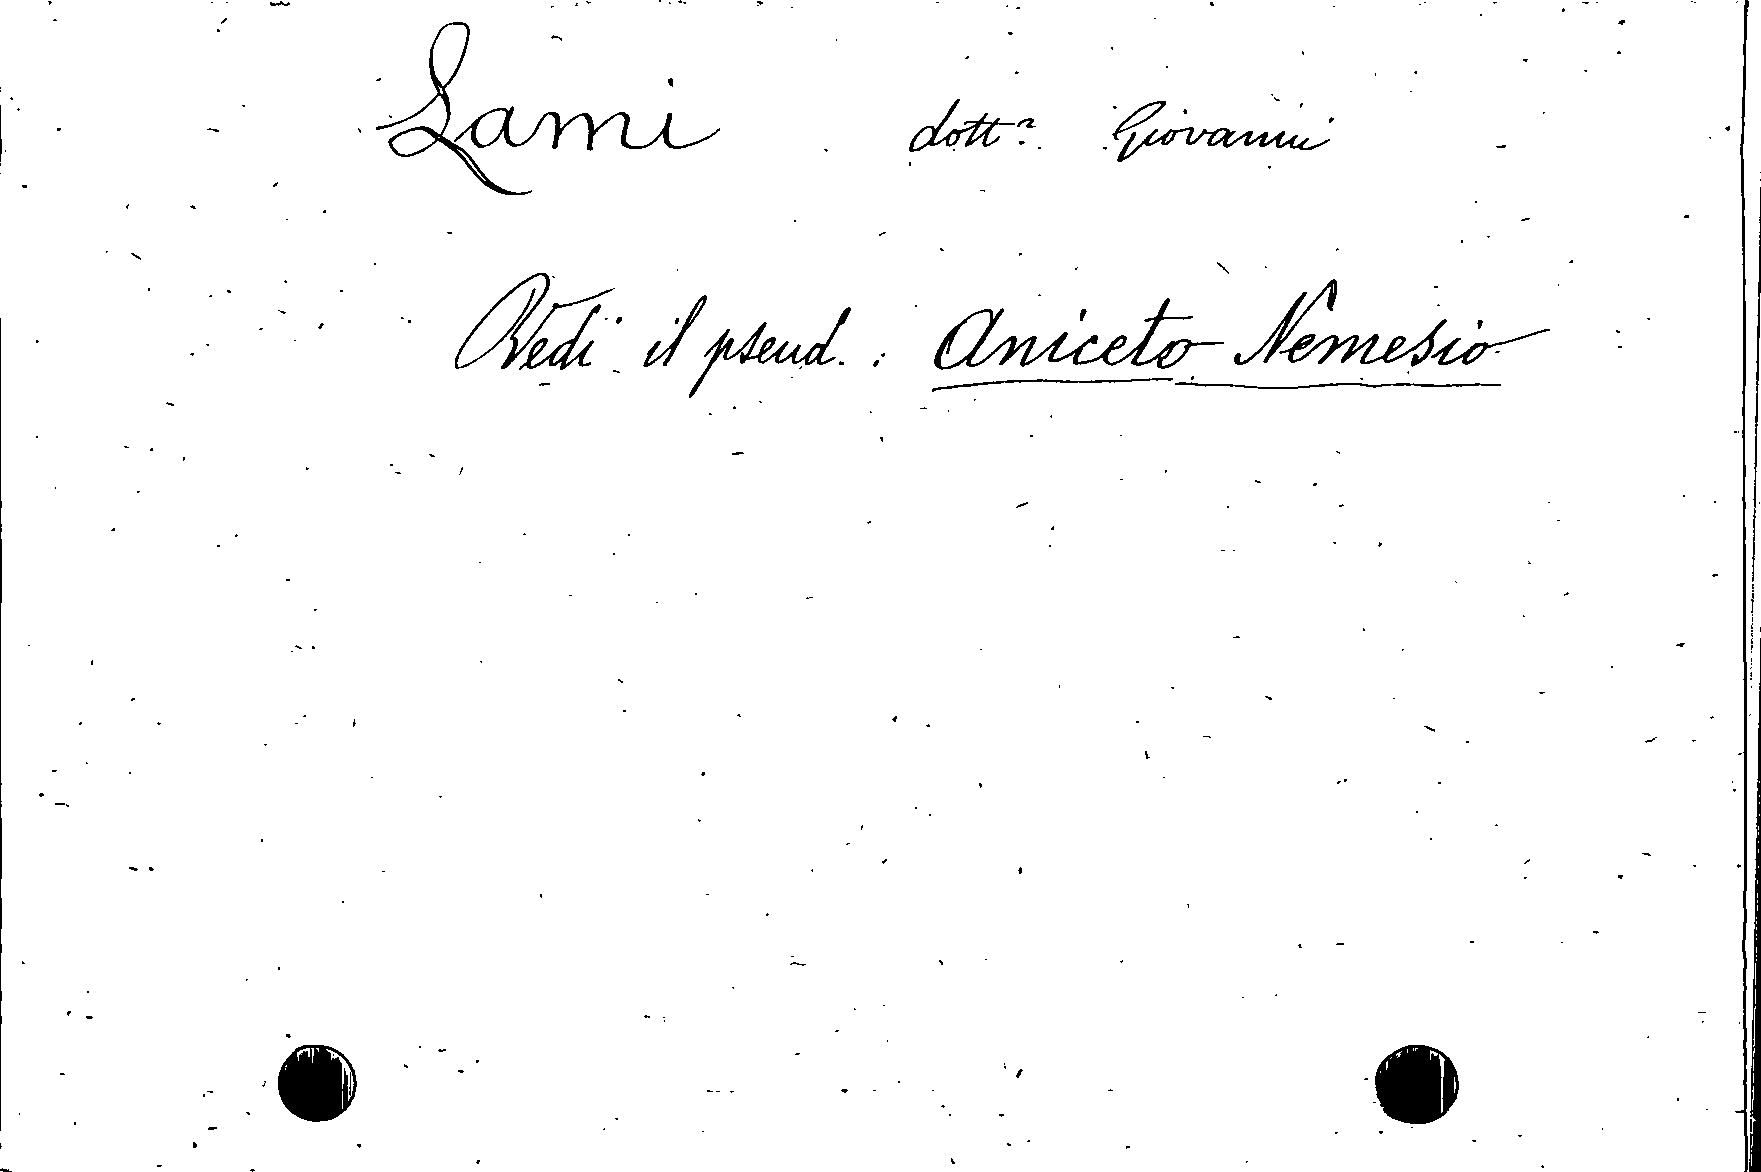 Lami dott.r Giovanni
Vedi il pseud. : Aniceto Nemesio